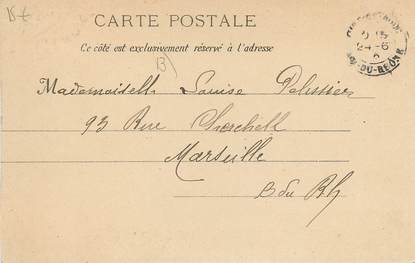 15€
CARTE POSTALE
Ce côté est exclusivement réservé à l'adresse
B)
24-6
-DU-RHÔNE
Mademoiselle Louise Pelissier
93 Rue Cherchell
Marseille
B du Rh